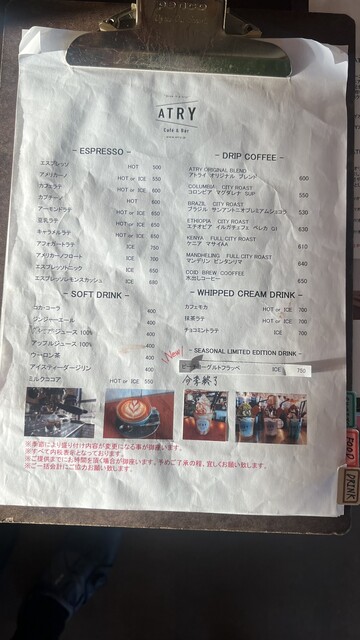 ATRY
Cafe & Bar
- ESPRESSO -
エスプレッソ HOT 500
アメリカーノ HOT or ICE 550
カフェラテ HOT or ICE 600
カプチーノ HOT 600
アーモンドラテ HOT or ICE 650
豆乳ラテ HOT or ICE 650
キャラメルラテ HOT or ICE 650
アフォガートラテ ICE 750
アメリカーノフロート ICE 700
エスプレッソトニック ICE 650
エスプレッソレモンスカッシュ ICE 680
- SOFT DRINK -
コカ・コーラ 400
ジンジャーエール 400
ジュース 100% 400
アップルジュース 100%
ウーロン茶 400
アイスティーダージリン 400
ミルクココア HOT or ICE 550
- DRIP COFFEE -
ATRY ORIGINAL BLEND
アトライ オリジナル ブレンド 600
COLUMBIA CITY ROAST
コロンビア マグダレナ SUP 550
BRAZIL CITY ROAST
ブラジル サンアントニオプレミアムショコラ 530
ETHIOPIA CITY ROAST
エチオピア イルガチェフェ ベレカ G1 630
KENYA FULL CITY ROAST
ケニア マサイAA 610
MANDHELING FULL CITY ROAST
マンデリン ビンタンリマ 640
COID BREW COOFFEE
水出しコーヒー 650
- WHIPPED CREAM DRINK -
カフェモカ HOT or ICE 700
抹茶ラテ HOT or ICE 700
チョコミントラテ ICE 700
New!
- SEASONAL LIMITED EDITION DRINK -
ーグルトフラッペ ICE 750
今季終了
※季節により盛り付け内容が変更になる事が御座います。
※すべて内税表示となっております。
※ご提供までにお時間を頂く場合が御座います。予めご了承の程、宜しくお願い致します。
※ご一括会計にご協力お願い致します。
FOOD
DRINK